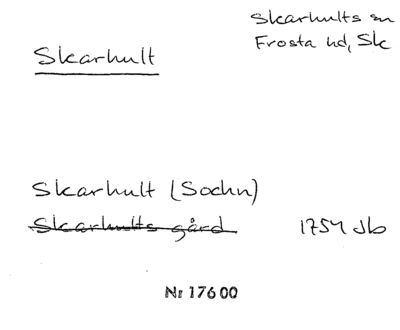 Skarhults sn
Frosta hd, Sk
Skarhult
Skarhult (Sochn)
Skarhults gård 1754 Jb
Nr 17600